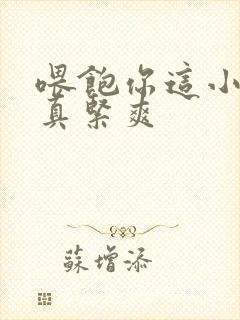 喂飽你這小
真緊爽
蘇增添